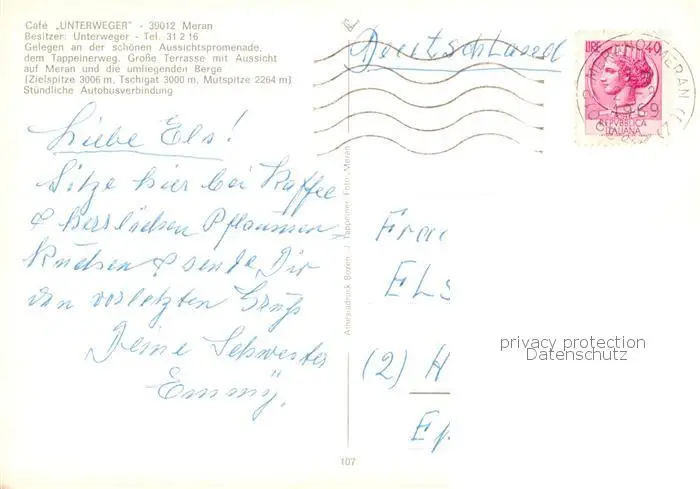 Café „UNTERWEGER" - 39012 Meran
Besitzer: Unterweger - Tel. 31 2 16
Gelegen an der schönen Aussichtspromenade,
dem Tappeinerweg. Große Terrasse mit Aussicht
auf Meran und die umliegenden Berge
(Zielspitze 3006 m, Tschigat 3000 m, Mutspitze 2264 m)
Stündliche Autobusverbindung
Deutschland
LIRE 40
REPVBBLICA
ITALIANA
MERANO MERAN
1969
Liebe Els!
Sitze hier bei Kaffee
& herrlichen Pflaumen-
kuchen & sende Dir
den vorletzten Gruß
Deine Schwester
Emmy.
Frau
ELS
(2) H
Ep
J. Tappeiner, Foto, Meran
privacy protection
Datenschutz
107